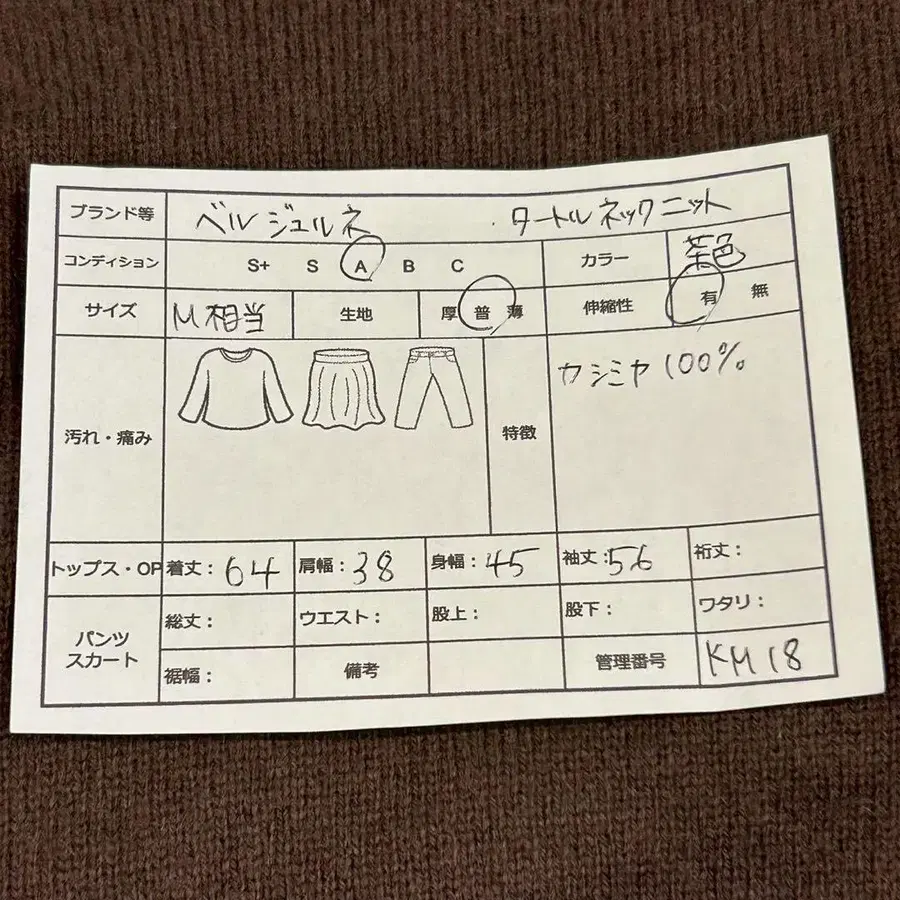 ブランド等 ベルジュルネ タートルネックニット
コンディション S+ S A B C カラー 茶色
サイズ M相当 生地 厚 普 薄 伸縮性 有 無
汚れ・痛み 特徴 カシミヤ100%
トップス・OP 着丈：64 肩幅：38 身幅：45 袖丈：56 裄丈：
パンツ スカート 総丈： ウエスト： 股上： 股下： ワタリ：
裾幅： 備考 管理番号 KM18